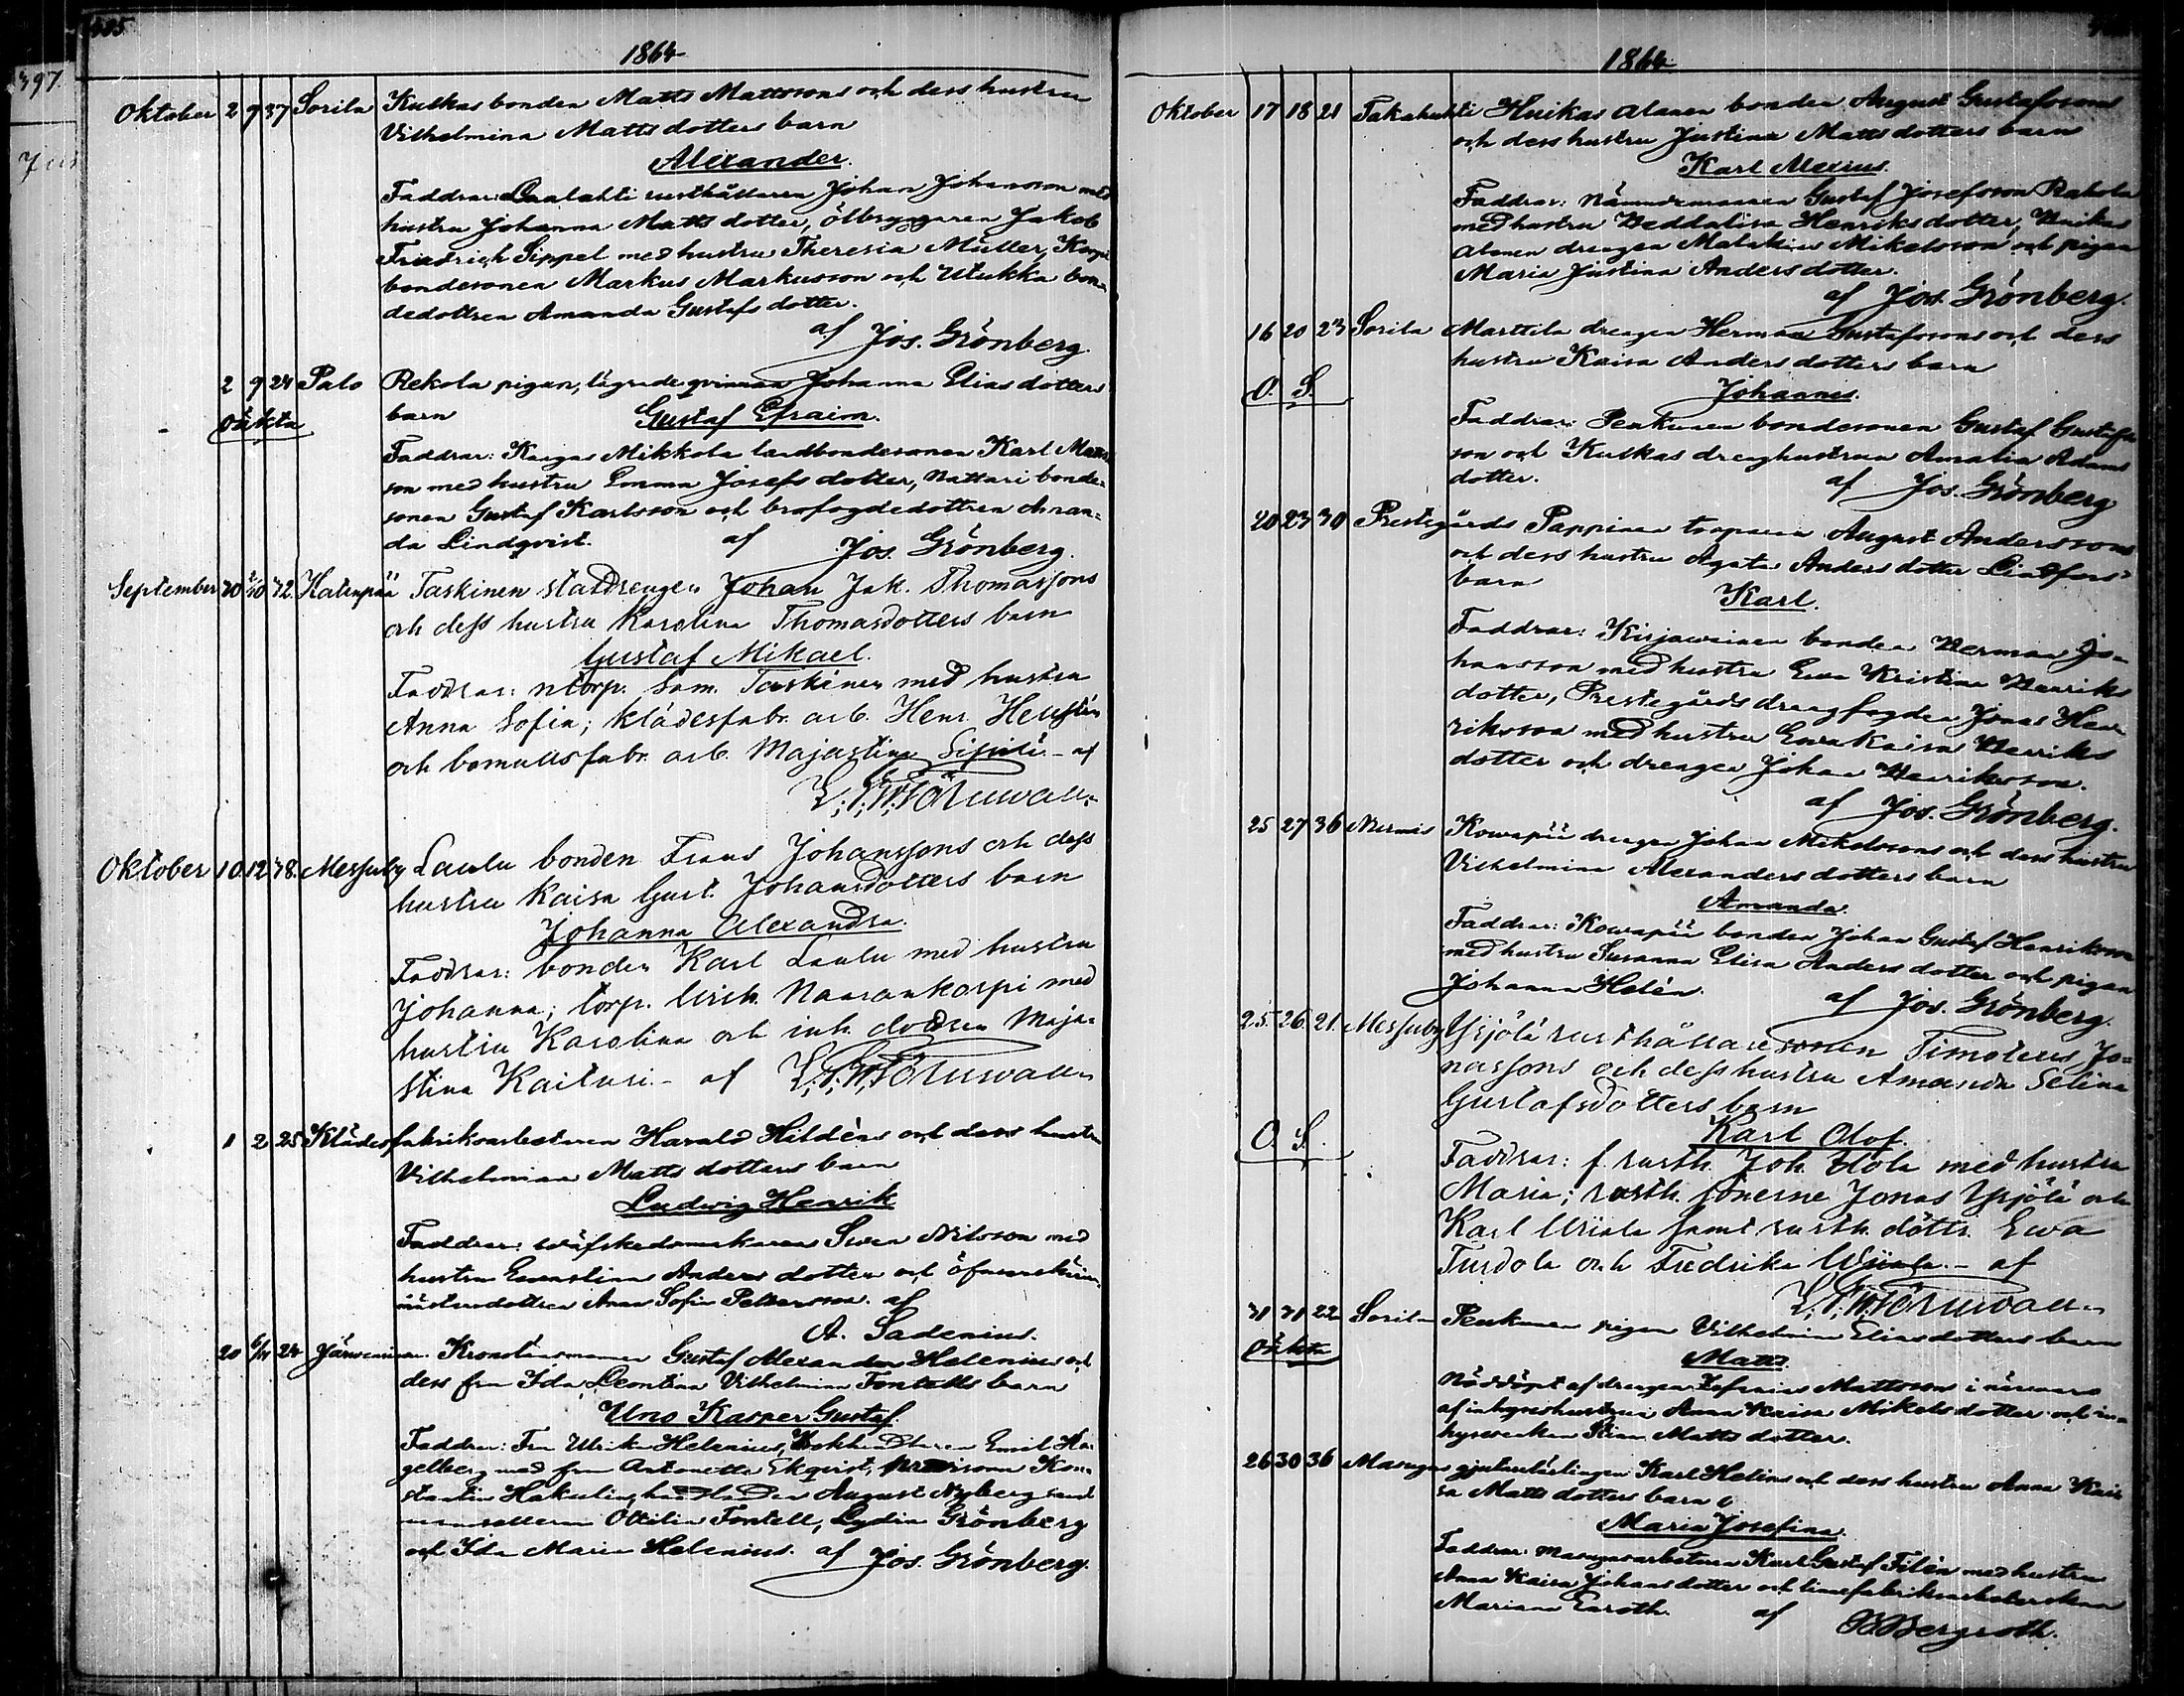 397.
1864
Oktober 2 9 37 Sorila Kulkas bonden Matts Mattssons och dess hustru
Vilhelmina Matts dotters barn
Alexander.
Faddrar: Laalahti rusthållaren Johan Johansson med
hustru Johanna Matts dotter, ölbryggaren Jakob
Friedrich Sippel med hustru Theresia Müller, Korpi
bondesonen Markus Markusson och Utukka bon-
dedottren Amanda Gustafs dotter.
af Jos. Grönberg.
2 9 24 Palo Rekola pigan, lägrade qvinnan Johanna Elias dotters
oäkta barn Gustaf Efraim.
Faddrar: Kangas Mikkola landbondesonen Karl Matts
son med hustru Emma Josefs dotter, Nattari bonde-
sonen Gustaf Karlsson och brofogdedottren Aman-
da Lindqvist. af Jos. Grönberg.
September 30 2/10 32 Hatanpää Taskinen statdrengen Johan Jak. Thomassons
och dess hustru Karolina Thomasdotters barn
Gustaf Mikael.
Faddrar: ntorp. Sam. Taskinen med hustru
Anna Sofia; klädesfabr. arb. Henr. Hellstén
och bomullsfabr. arb. Majastina Sipilä. – af
Oktober 10. 12. 38. Messuby Laulu bonden Frans Johanssons och dess
hustru Kaisa Gust. Johansdotters barn
Johanna Alexandra.
Faddrar: bonden Karl Laulu med hustru
Johanna; torp. Ulrik Naarankorpi med
hustru Karolina och inh. dottren Maja-
stina Kaituri – af
1 2 25 Klädesfabriksarbetaren Harald Hildéns och dess hustru
Vilhelmina Matts dotters barn
Ludwig Henrik
Faddrar: wäfskedsmakaren Swen Nilsson med
hustru Ewastina Anders dotter och
dottren Anna Sofia Pettersson. af
A. Sadenius.
20 6/11 24 Kronolänsmannen Gustaf Alexander Helenius och
dess fru Ida Leontina Vilhelmina Fontells barn
Uno Kasper Gustaf.
Faddrar: Fru Ulrika Helenius, Bokhandlaren Emil Ha-
gelberg med fru Antonette Ekqvist, Provisorn Kon-
stantin handlanden August Nyberg samt
mamsellerna Ottilia Fontell, Lydia Grönberg
och Ida Maria Helenius. af Jos. Grönberg.
1864
Oktober 17 18 21 Takahuhti Huikas Alanen bonden August Gustafssons
och dess hustru Justina Matts dotters barn
Karl Alexius.
Faddrar: Nämndemannen Gustaf Josefsson Rahola
med hustru Heddalisa Henriks dotter, Huikas
Alanen drengen Malakias Mikelsson och pigan
Maria Justina Anders dotter.
af Jos. Grönberg.
16 20 23 Sorila Marttila drengen Herman Gustafssons och dess
hustru Kaisa Anders dotters barn
O. S.
Johannes.
Faddrar: Penkunen bondesonen Gustaf Gustafs-
son och Kulkas drenghustrun Amalia Adams
dotter. af Jos. Grönberg
20 23 30 Prestegårds Pappinen torparen August Anderssons
och dess hustru Agata Anders dotter Lindfors'
barn
Karl.
Faddrar: Kirjawainen bonden Herman Jo-
hansson med hustru Ewa Kristina Henriks
dotter, Prestegårds drengfogden Jonas Hen-
riksson med hustru Ewa Kaisa Henriks
dotter och drengen Johan Henriksson.
af Jos. Grönberg.
25 27 36 Nurmis Kowapää drengen Johan Mikelssons och dess hustru
Vilhelmina Alexanders dotters barn
Amanda.
Faddrar: Kowapää bonden Johan Gustaf Henriksson
med hustru Susanna Elisa Anders dotter och pigan
Johanna Helén. af Jos. Grönberg.
25. 26. 21. Messuby Yrjölä rusthållaresonen Timoteus Jo-
nassons och dess hustru Amanda Selina
Gustafsdotters barn
O. S.
Karl Olof.
Faddrar: f. rusth. Joh. Hola med hustru
Maria; rusth. sönerne Jonas Yrjölä och
Karl samt rusth. döttr. Ewa
Turdola och Fredrika – af
31 31 22 Sorila Penkunen pigan Vilhelmina Elias dotters barn
oäkta
Matts.
Nöddöpt af drengen Mattsson i närwaro
af inhyseshustrun Anna Kaisa Mikels dotter och in-
hyses Matts dotter.
26 30 36 Masugns gjutarlärlingen Karl Heléns och dess hustru Anna Kai-
sa Matts dotters barn
Maria Josefina.
Faddrar: Masugnsarbetaren Karl Gustaf Filén med hustru
Anna Kaisa Johans dotter och linnefabriksarbeterskan
Mariana Enroth. af Bergroth.